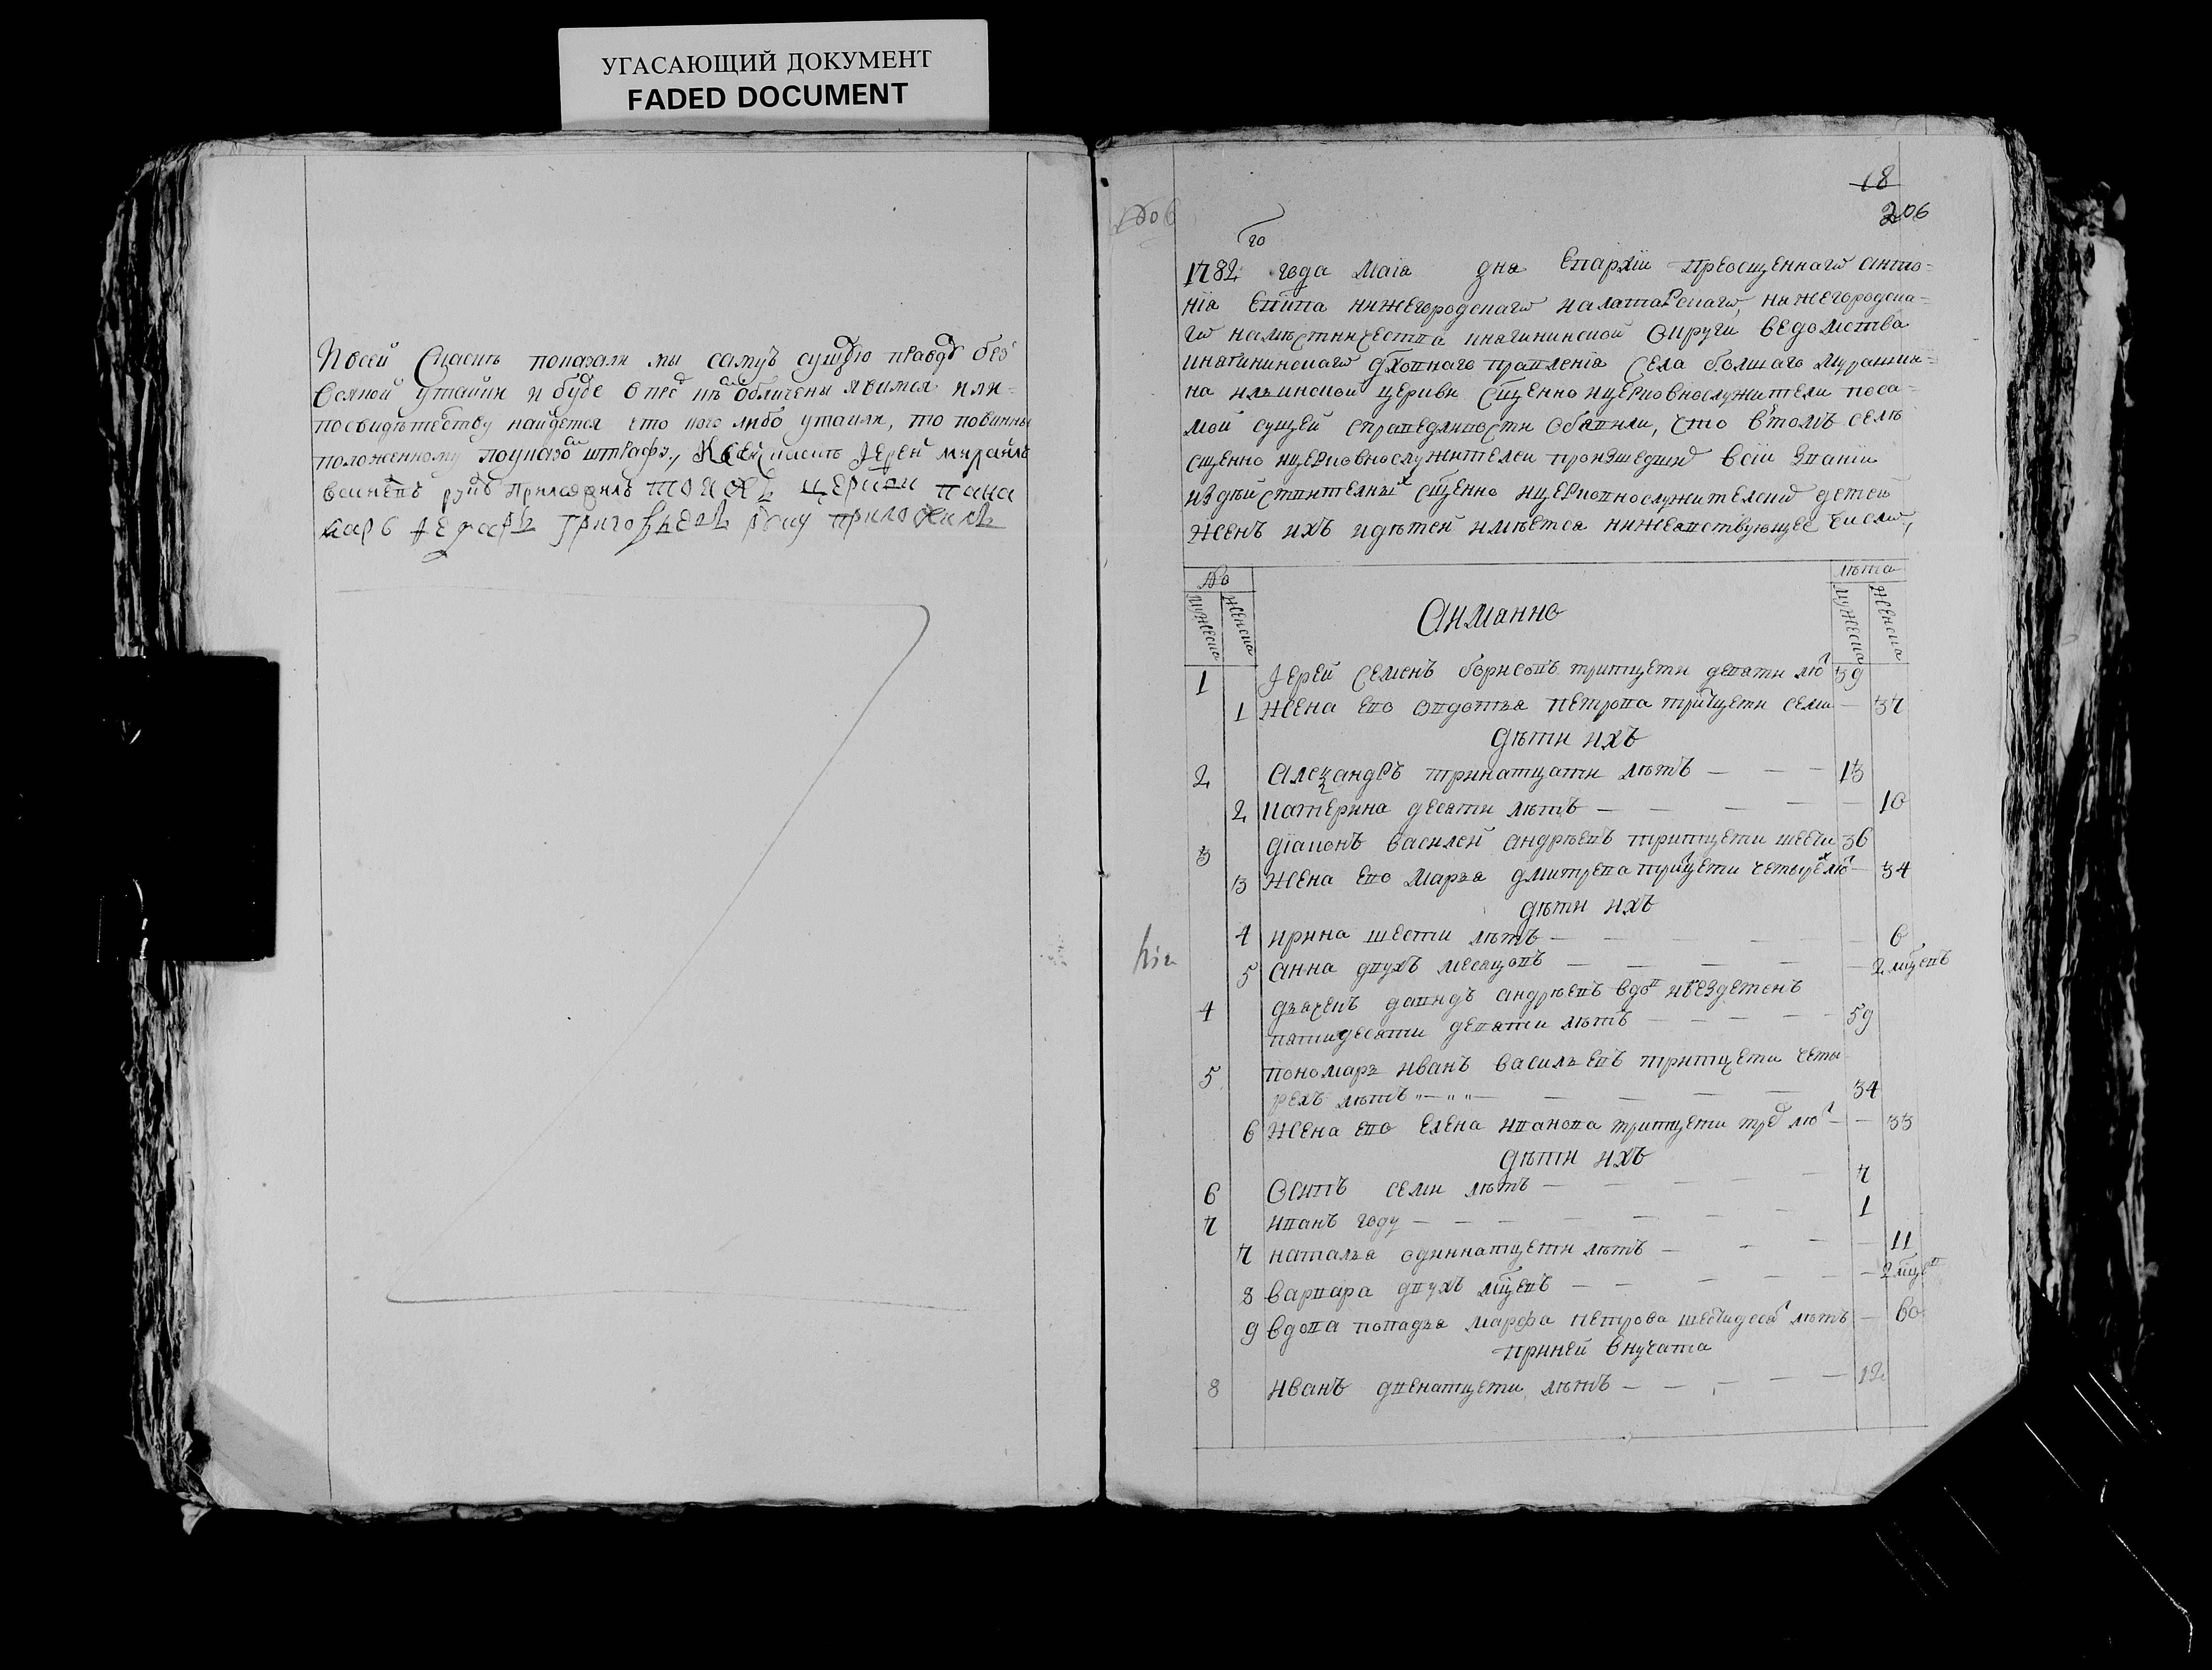 УГАСАЮЩИЙ ДОКУМЕНТ
FADED DOCUMENT
Ксей сказкѣ показали мы самую сущую правду безо
всякой утайки и буде впред мы обличены явимся или
по свидѣтелству найдется что кого либо утаили, то повинны
положенному по указомъ штрафу, Ксей скаскѣ Іерей михаилъ
руку приложилъ тоя жъ церкви пана
марь Григорьевъ руку приложилъ
18
206
го
1782 года Маія дня Епархіи преосщеннаго Анто=
нія Епіпа нижегородскаго иалатарскаго, нижегородска=
го намѣстничества княгининской округи ведомства
княгининскаго дховнаго правленія села болшаго мурашки=
на ильинской церкви сщенно ицерковнослужители поса=
мой сущей справедливости обявили, что втомъ селѣ
сщенно ицерковнослужителей произшедшихъ всіи званіи
из дѣйствителных сщенно ицерковнослужителских детей
женъ ихъ идѣтей имѣется нижеявствующее число,
№
лѣта
мужеска
женска
А имянно
мужеска
женска
1 Іерей Семенъ борисовъ тритцети девяти лѣт 39
1 жена ево овдотья петрова тритцети семи — 37
дѣти ихъ
2 Алеѯандръ тринатцати лѣтъ — — — 13
2 катерина десяти лѣтъ — — — — — 10
3 діаконъ василей андрѣевъ тритцети шести 36
3 жена ево марья дмитрева тритцети четырех лѣт — 34
дѣти ихъ
4 ирина шести лѣтъ — — — — — 6
5 анна двухъ месяцовъ — — — — — 2 мцсвъ
4 дьячекъ давидъ андрѣевъ вдов ибездетенъ
пятидесяти девяти лѣтъ — — — — 59
5 пономарь иванъ васильевъ тритцети четы
рехъ лѣтъ — — — — — 34
6 жена ево елена иванова тритцети трех лѣт — — 33
дѣти ихъ
6 осипъ семи лѣтъ — — — — — 7
7 иванъ году — — — — — — — 1
7 наталья одиннатцети лѣтъ — — — — 11
8 варвара двухъ мсцевъ — — — — — 2 мсцев
9 вдова попадья марфа петрова шестидесят лѣтъ — 60
приней внучата
8 иванъ двенатцети лѣтъ — — — — — 12